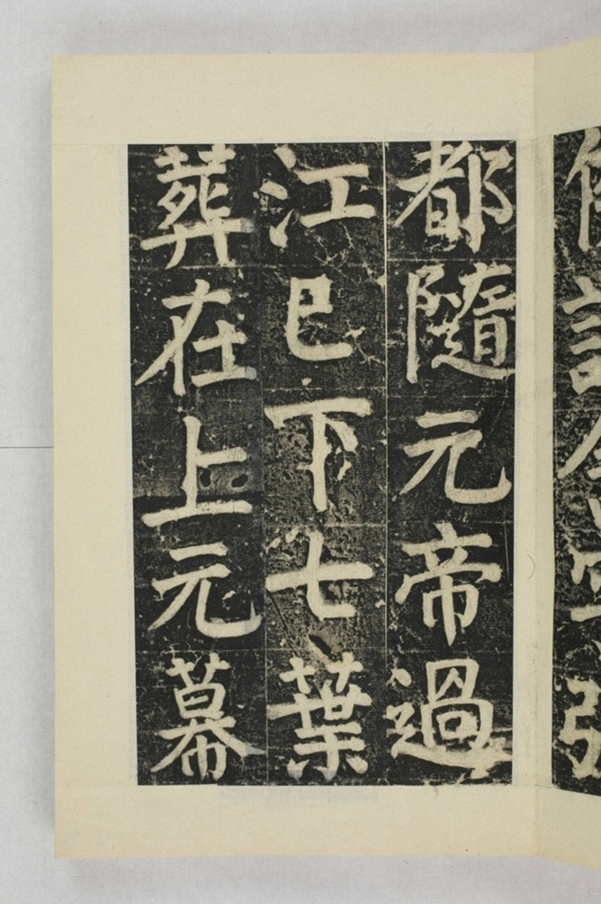 都隨元帝過
江已下七葉
葬在上元幕